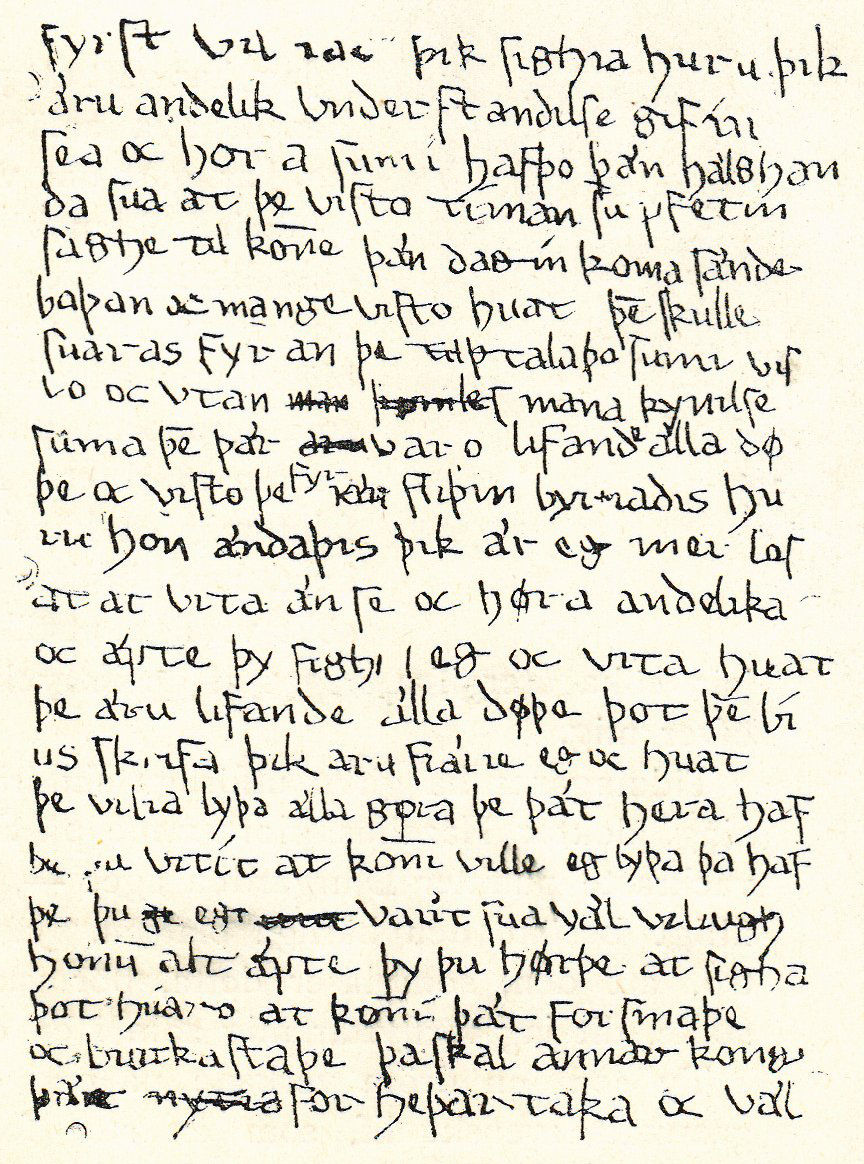 fyrst vil iac þik sighia huru þik
äru andelik vnderstandilse gifin
sea oc hør a sumi hafþo þän hälghan
da sua at þe visto timan su pfetin
saghe til kon̄e þän dagh in koma sände
baþan oc mange visto huat þē skulle
suaras fyr än þe talaþo sumi vis
to oc vtan mana kynilse
suma þē þär varo lifande älla dø
þe oc visto þe fyr än stiþin byriadis hu
ru hon ändaþis þik är eg mer lof
at at vita än se oc høra andelika
oc äpte þy sighi eg oc vita huat
þe äru lifande älla døþe þot þē bi
us skrifa þik äru fräire eg oc huat
þe vilia lyþa älla gøra þe þät hera haf
þe þu vitit at kon̄i ville eg lyþa þa haf
þe þu egi varit sua väl viliugh
honū alt äpte þy þu hørþe at sigha
þot huaro at kon̄i þät forsmaþe
oc burtkastaþe þa skal annar konu
for heþar taka oc väl